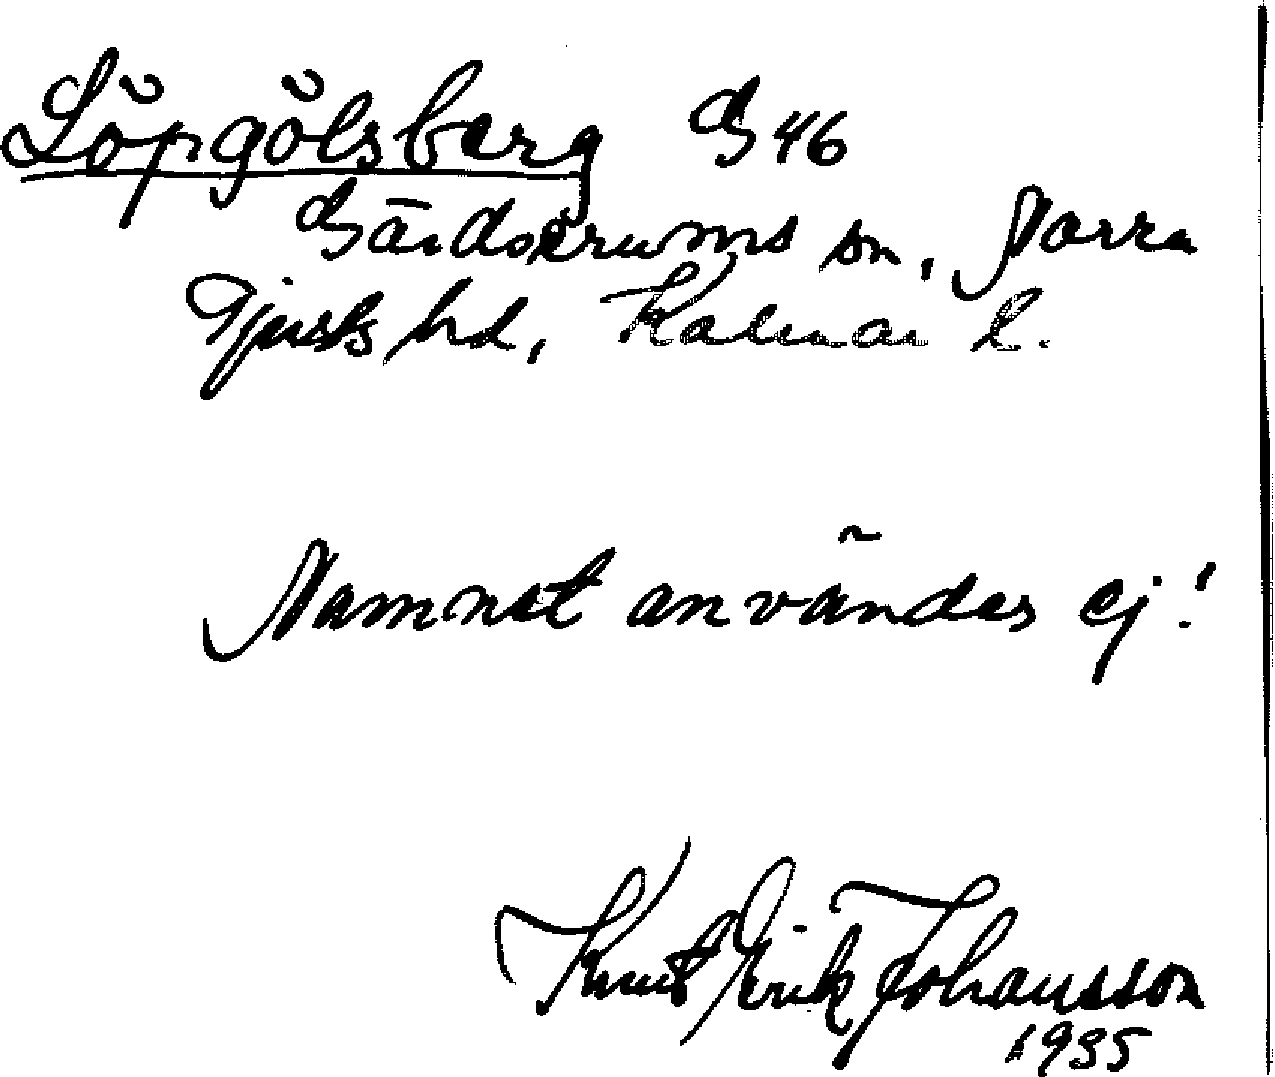 Löpgölsberg G 46
Gärdserums sn, Norra
Tjusts hd, Kalmar l.
Namnet användes ej!
Knut Erik Johansson
1935